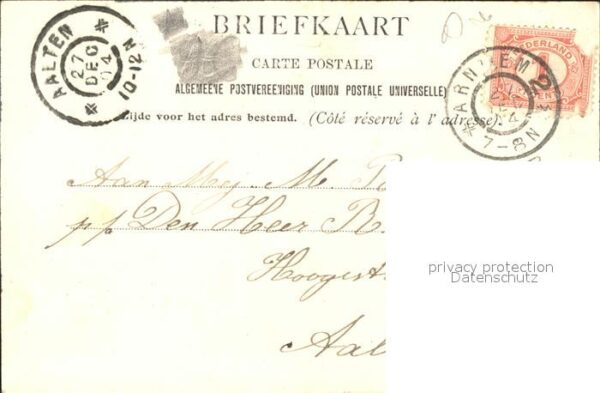 BRIEFKAART
CARTE POSTALE
ALGEMEENE POSTVEREENIGING (UNION POSTALE UNIVERSELLE)
Zijde voor het adres bestemd. (Côté réservé à l'adresse).
AALTEN
27 DEC 04
10-12N
NEDERLAND
ARNHEM 2
7-8N
Aan Mej. M.
p/p Den Heer R.
Hoogest
Aal
privacy protection
Datenschutz